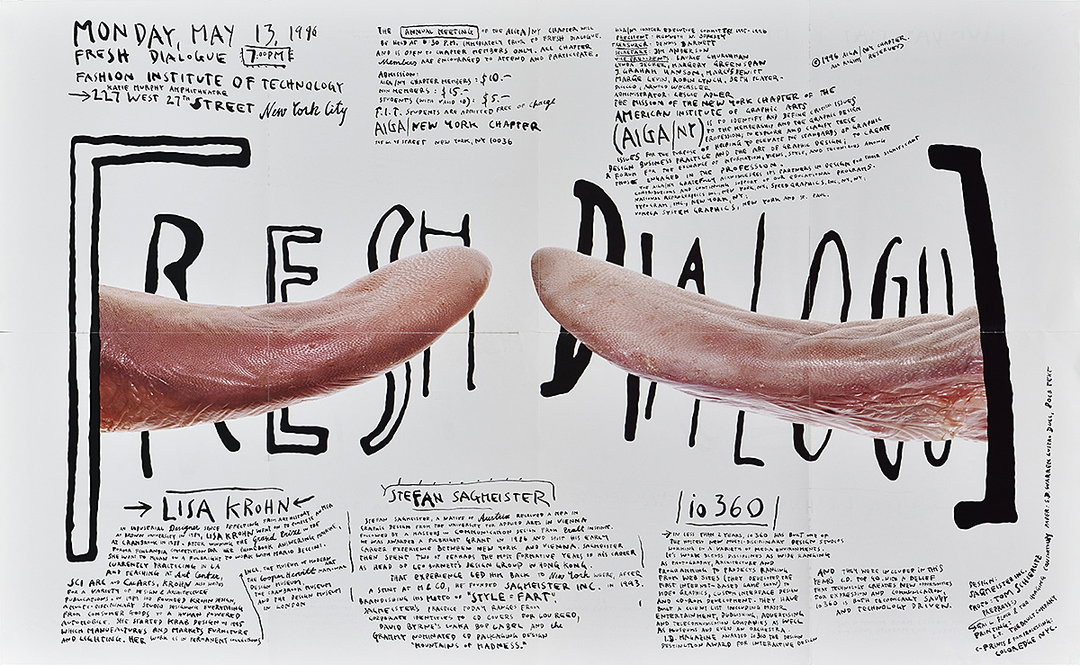 MONDAY, MAY 13, 1996
FRESH DIALOGUE 7:00PM
FASHION INSTITUTE OF TECHNOLOGY
KATIE MURPHY AMPHITHEATRE
→227 WEST 27th STREET New York City
THE ANNUAL MEETING OF THE AIGA/NY CHAPTER WILL
BE HELD AT 6:30 P.M. IMMEDIATELY PRIOR TO FRESH DIALOGUE.
AND IS OPEN TO CHAPTER MEMBERS ONLY. ALL CHAPTER
Members ARE ENCOURAGED TO ATTEND AND PARTICIPATE.
ADMISSION:
AIGA/NY CHAPTER MEMBERS: $10.-
NON MEMBERS: $15.-
STUDENTS (WITH VALID ID): $5.-
F.I.T. STUDENTS ARE ADMITTED FREE of charge
AIGA/NEW YORK CHAPTER
NEW YORK, NY 10036
PRESIDENT: KENNETH W. OPPENEY
TREASURER: DENNIS BARNETT
SECRETARY: JIM ANDERSON
VICE PRESIDENTS: LAURIE CHURCHMAN
LYNDA DECKER, MARGERY GREENSPAN
J. GRAHAM HANSON, MARCUS HEWITT
MARGE LEVIN, ROBIN LYNCH, BETH
ARNOLD WECHSLER
ADMINISTRATOR: LESLIE ADLER
THE MISSION OF THE NEW YORK CHAPTER OF THE
AMERICAN INSTITUTE OF GRAPHIC ARTS
(AIGA/NY) IS TO IDENTIFY AND DEFINE CRITICAL ISSUES
TO THE MEMBERSHIP AND THE GRAPHIC DESIGN
PROFESSION; TO EXPLORE AND CLARIFY THESE
ISSUES FOR THE PURPOSE OF HELPING TO ELEVATE THE STANDARDS OF GRAPHIC
DESIGN BUSINESS PRACTICE AND THE ART OF GRAPHIC DESIGN; TO CREATE
A FORUM FOR THE EXCHANGE OF INFORMATION, VIEWS, STYLE, AND TECHNIQUES AMONG
THOSE ENGAGED IN THE PROFESSION.
THE AIGA/NY GRATEFULLY ACKNOWLEDGES ITS PARTNERS IN DESIGN FOR THEIR SIGNIFICANT
CONTRIBUTIONS AND CONTINUING SUPPORT OF OUR EDUCATIONAL PROGRAMS.
NATIONAL REPROGRAPHICS INC, NEW YORK, NY; SPEED GRAPHICS, INC, NY, NY;
TYPOGRAM, INC., NEW YORK, NY;
VOMELA SYSTEM GRAPHICS, NEW YORK AND ST. PAUL.
©1996 AIGA/NY CHAPTER.
ALL RIGHTS RESERVED
[FRESH DIALOGUE]
→ LISA KROHN ←
AN INDUSTRIAL Designer SINCE DEFECTING FROM ART HISTORY
AT BROWN UNIVERSITY IN 1985, LISA KROHN WENT ON TO COMPLETE
AT CRANBROOK IN 1988. AFTER WINNING THE Grand Prize IN THE
FINLANDIA COMPETITION FOR HER PHONEBOOK ANSWERING MACHINE,
SHE WENT TO MILAN ON A FULBRIGHT TO WORK WITH MARIO BELLINI.
CURRENTLY PRACTICING IN LA
AND TEACHING AT Art Center,
SCI ARC AND CALARTS, KROHN ALSO WRITES
FOR A VARIETY OF DESIGN & ARCHITECTURE
PUBLICATIONS. IN 1987 SHE FOUNDED KROHN DESIGN
A MULTI-DISCIPLINARY STUDIO DESIGNING EVERYTHING
FROM CONSUMER GOODS TO A HUMAN POWERED
AUTOLOGUE. SHE STARTED KRAB DESIGN IN 1995
WHICH MANUFACTURES AND MARKETS FURNITURE
AND LIGHTING. HER WORK IS IN PERMANENT COLLECTIONS
INCL. THE MUSEUM OF MODERN ART
THE Cooper-Hewitt
THE CRANBROOK MUSEUM
AND THE DESIGN MUSEUM
IN LONDON
STEFAN SAGMEISTER
STEFAN SAGMEISTER, A NATIVE OF Austria RECEIVED A MFA IN
GRAPHIC DESIGN FROM THE UNIVERSITY OF APPLIED ARTS IN VIENNA
FOLLOWED BY A MASTERS IN COMMUNICATION DESIGN FROM Pratt INSTITUTE.
HE WAS AWARDED A FULBRIGHT GRANT IN 1986 AND SPLIT HIS EARLY
CAREER EXPERIENCE BETWEEN NEW YORK AND VIENNA. SAGMEISTER
THEN SPENT TWO OF PERHAPS THE MOST FORMATIVE YEARS OF HIS CAREER
AS HEAD OF LEO BURNETT'S DESIGN GROUP IN HONG KONG.
THAT EXPERIENCE LED HIM BACK TO New York WHERE, AFTER
A STINT AT M&CO, HE FOUNDED SAGMEISTER INC. 1993.
BRANDISHING THE MOTTO OF "STYLE = FART",
SAGMEISTER'S PRACTICE TODAY RANGES FROM
CORPORATE IDENTITIES TO CD COVERS FOR LOU REED,
DAVID BYRNE'S LUAKA BOP LABEL AND THE
GRAMMY NOMINATED CD PACKAGING DESIGN
"MOUNTAINS OF MADNESS."
|io 360|
→ IN LESS THAN 2 YEARS, IO 360 HAS BUILT ONE OF
THE HOTTEST NEW MULTI-DISCIPLINARY DESIGN STUDIOS
WORKING IN A VARIETY OF MEDIA ENVIRONMENTS.
AS PHOTOGRAPHY, ARCHITECTURE AND
PROGRAMMING TO PROJECTS RANGING
FROM WEB SITES (THEY DEVELOPED THE
FIRST INTERNET-BASED GAME SHOW)
VIDEO GRAPHICS, CUSTOM INTERFACE DESIGN
AND CD-ROM DEVELOPMENT. THEY HAVE
BUILT A CLIENT LIST INCLUDING MAJOR
ENTERTAINMENT, PUBLISHING, ADVERTISING
AND TELECOMMUNICATION COMPANIES AS WELL
AS MUSEUMS AND EVEN AN ORCHESTRA
I.D. MAGAZINE AWARDED IO 360 THE DESIGN
DISTINCTION AWARD FOR INTERACTIVE DESIGN
AND THEY WERE INCLUDED IN THIS
YEARS I.D. TOP 40. WITH A BELIEF
THAT TECHNOLOGY CREATES NEW MEDIUMS
FOR EXPRESSION AND COMMUNICATION,
IO 360 IS BOTH TECHNOLOGICALLY SAVVY
AND TECHNOLOGY DRIVEN.
DESIGN:
SAGMEISTER INC.
PHOTO: TOM SCHIERLITZ
PREPRESS AND
PRINTING:
C-PRINTS & RETOUCHING:
COLOREDGE NYC.
PAPER: S.D. WARREN LUSTRO DULL, 80LB TEXT